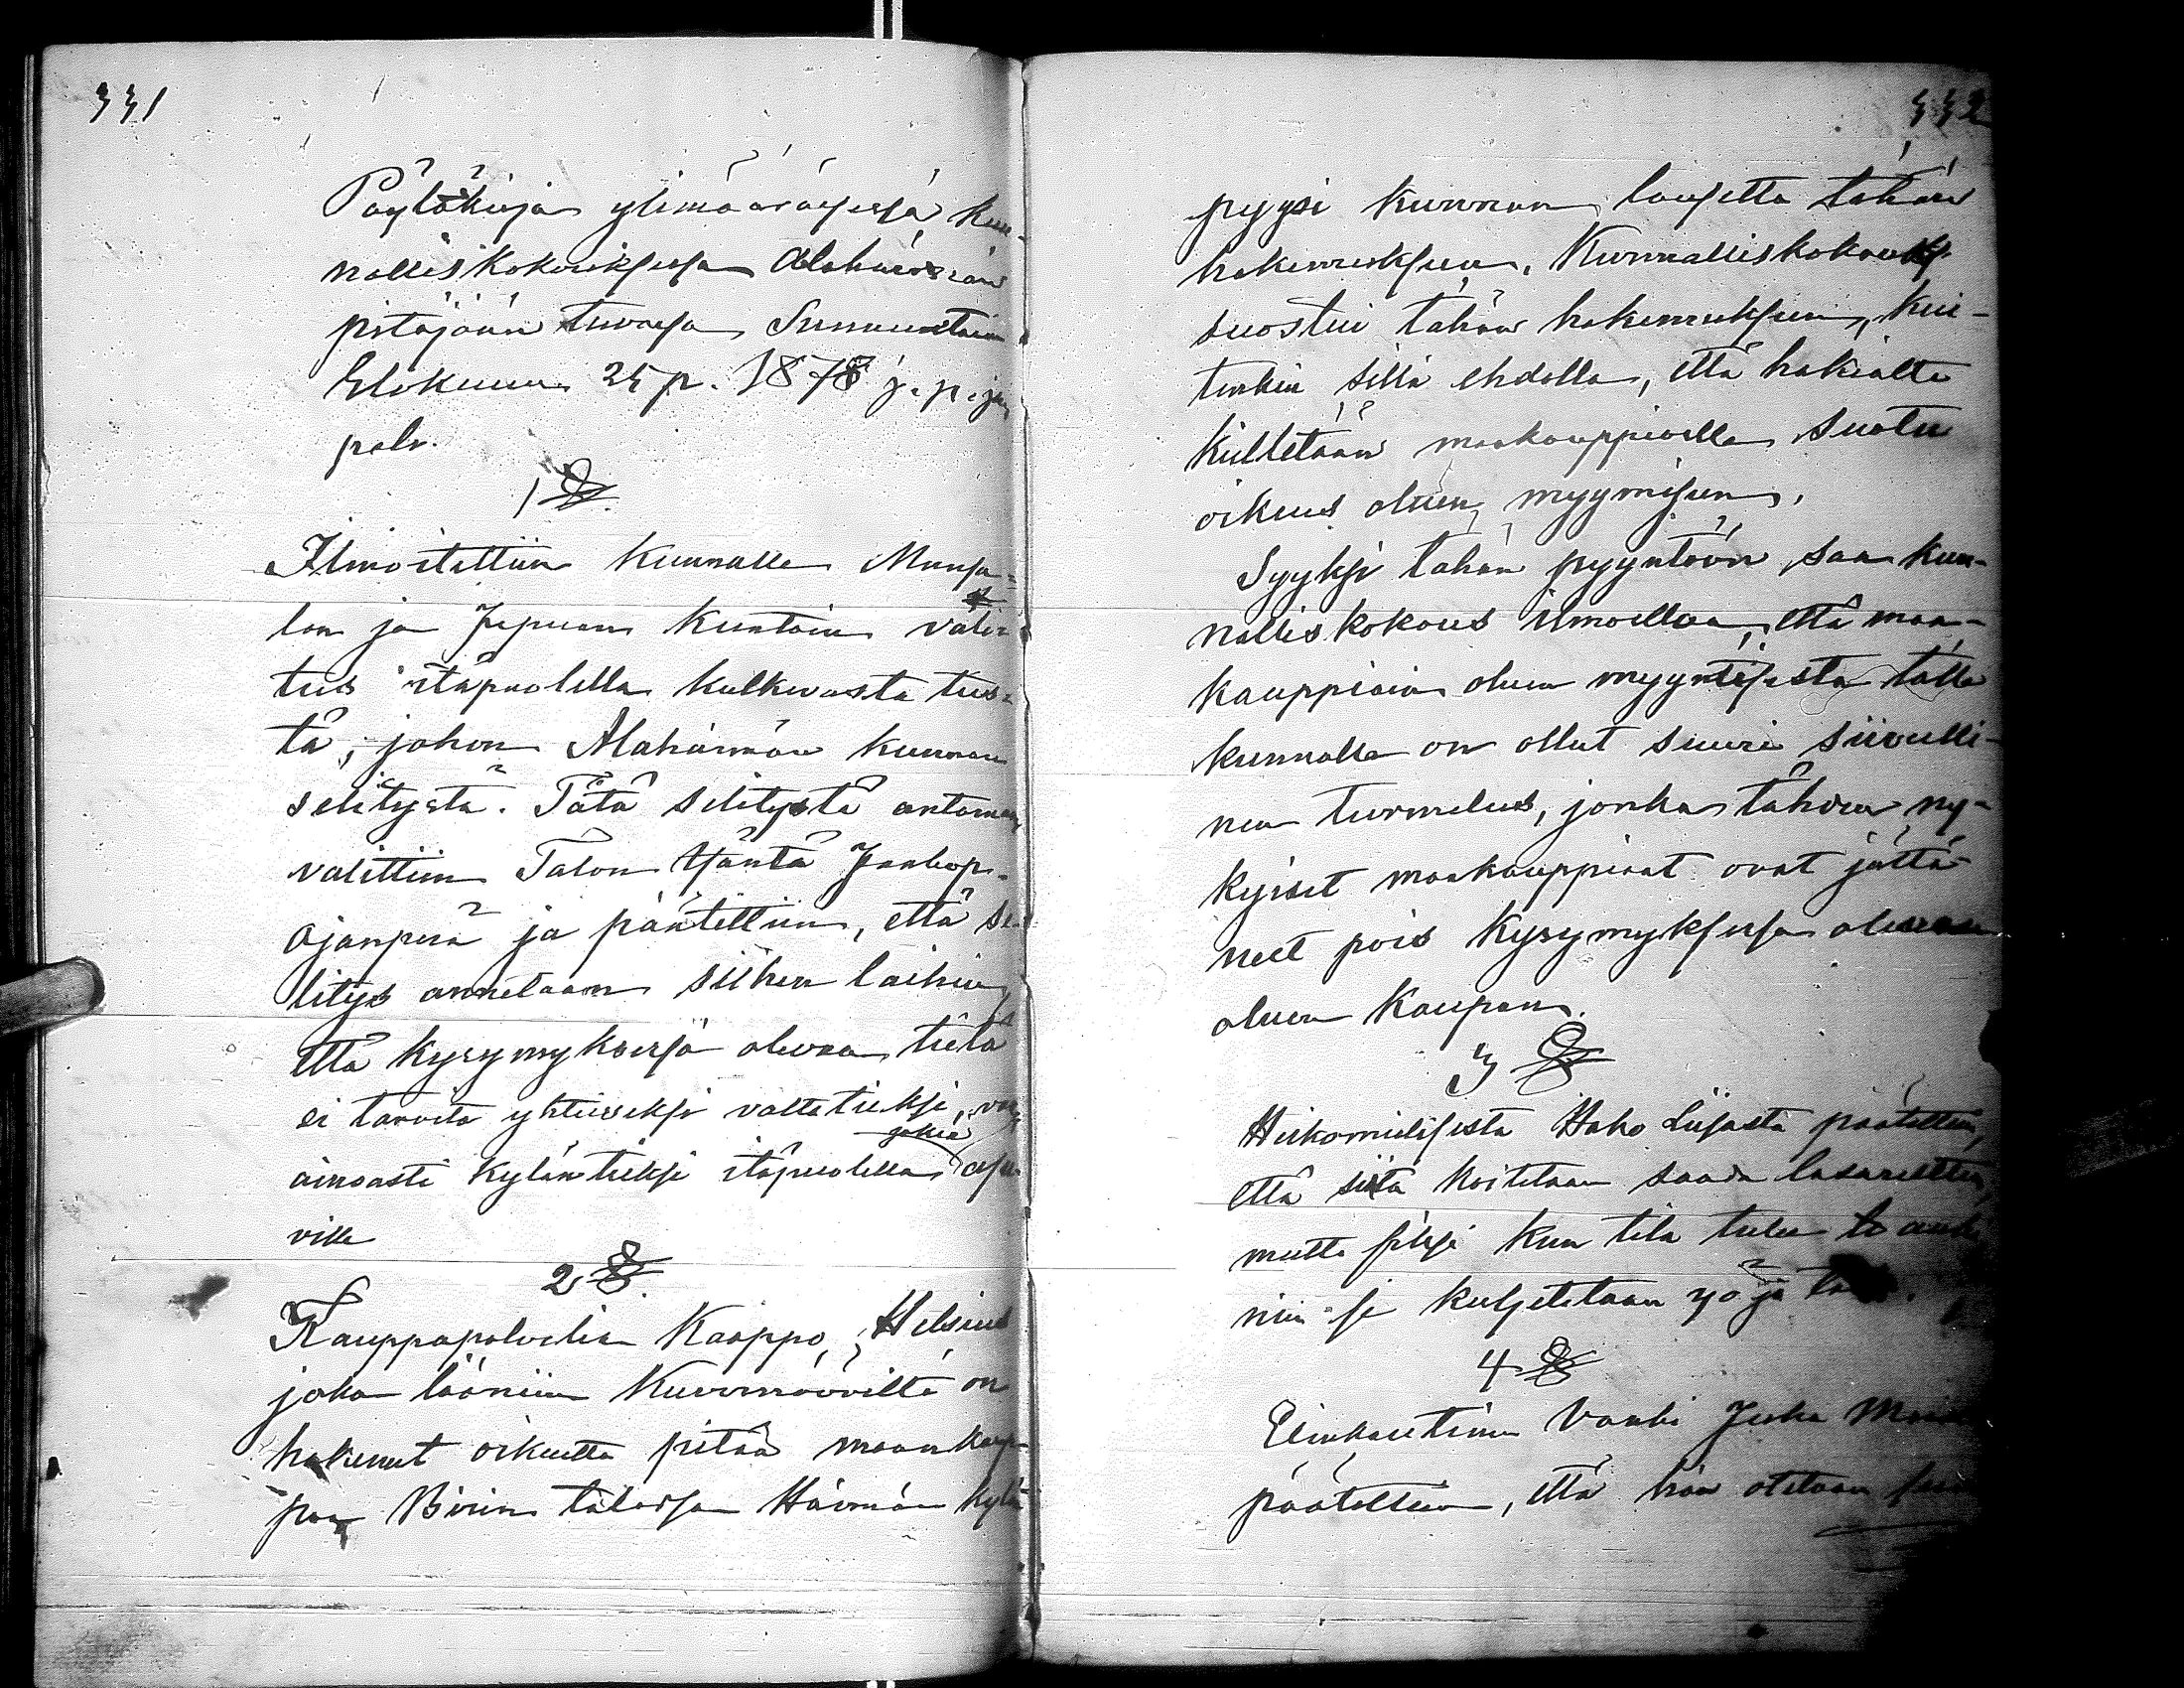 331
Pöytäkirja ylimääräisessä kun-
nalliskokouksessa Alahärmän
pitäjään tuvassa Sunnuntain
Elokuun 25 p. 1878 j. p. jan
palv.
1 §.
Ilmoitettiin Kunnalle Munsa-
lon ja Jepuan Kuntain väli-
tus itäpuolella kulkevasta ties-
tä, johon Alahärmän Kunnan
selitystä. Tätä selitystä antamaan
valittiin Talon Isäntä Jaakop
Ojanperä ja päätettiin, että se-
litys annetaan siihen laihin,
että kysymyksessä olevaa tietä
ei tarvita yhteiseksi valtatieksi, van
ainoasti kyläntieksi itäpuolella jokia asu
ville
2 §.
Kauppapalvelia Kaappo Helsius
joka läänin Kuvernööviltä on
hakenut oikeutta pitää maankaup-
paa Birin talossa Härmän kylä
332
pyysi kunnan lausetta tähän
hakemukseen. Kunnalliskokous
suostui tähän hakemukseen, kui-
tenkin sillä ehdolla, että hakialta
kielletään maakauppioille suotu
oikeus oluen myymiseen.
Syyksi tähän pyyntöön saa kun-
nalliskokous ilmoittaa, että maa-
kauppiain oluen myyntisestä tällä
kunnalla on ollut suuri siivolli-
nen turmelus, jonka tähden ny-
kyiset maakauppiaat ovat jättä-
neet pois kysymyksessä olevan
oluen kaupan.
3 §
Heikomielisestä Haho Liisasta päätettiin,
että siitä koitetaan saada lasarettiin,
mutta siksi kun tila tulee
niin se kuljetetaan yö ja
4 §
Elinkautinen Vanki Juha
päätettiin, että hän otetaan